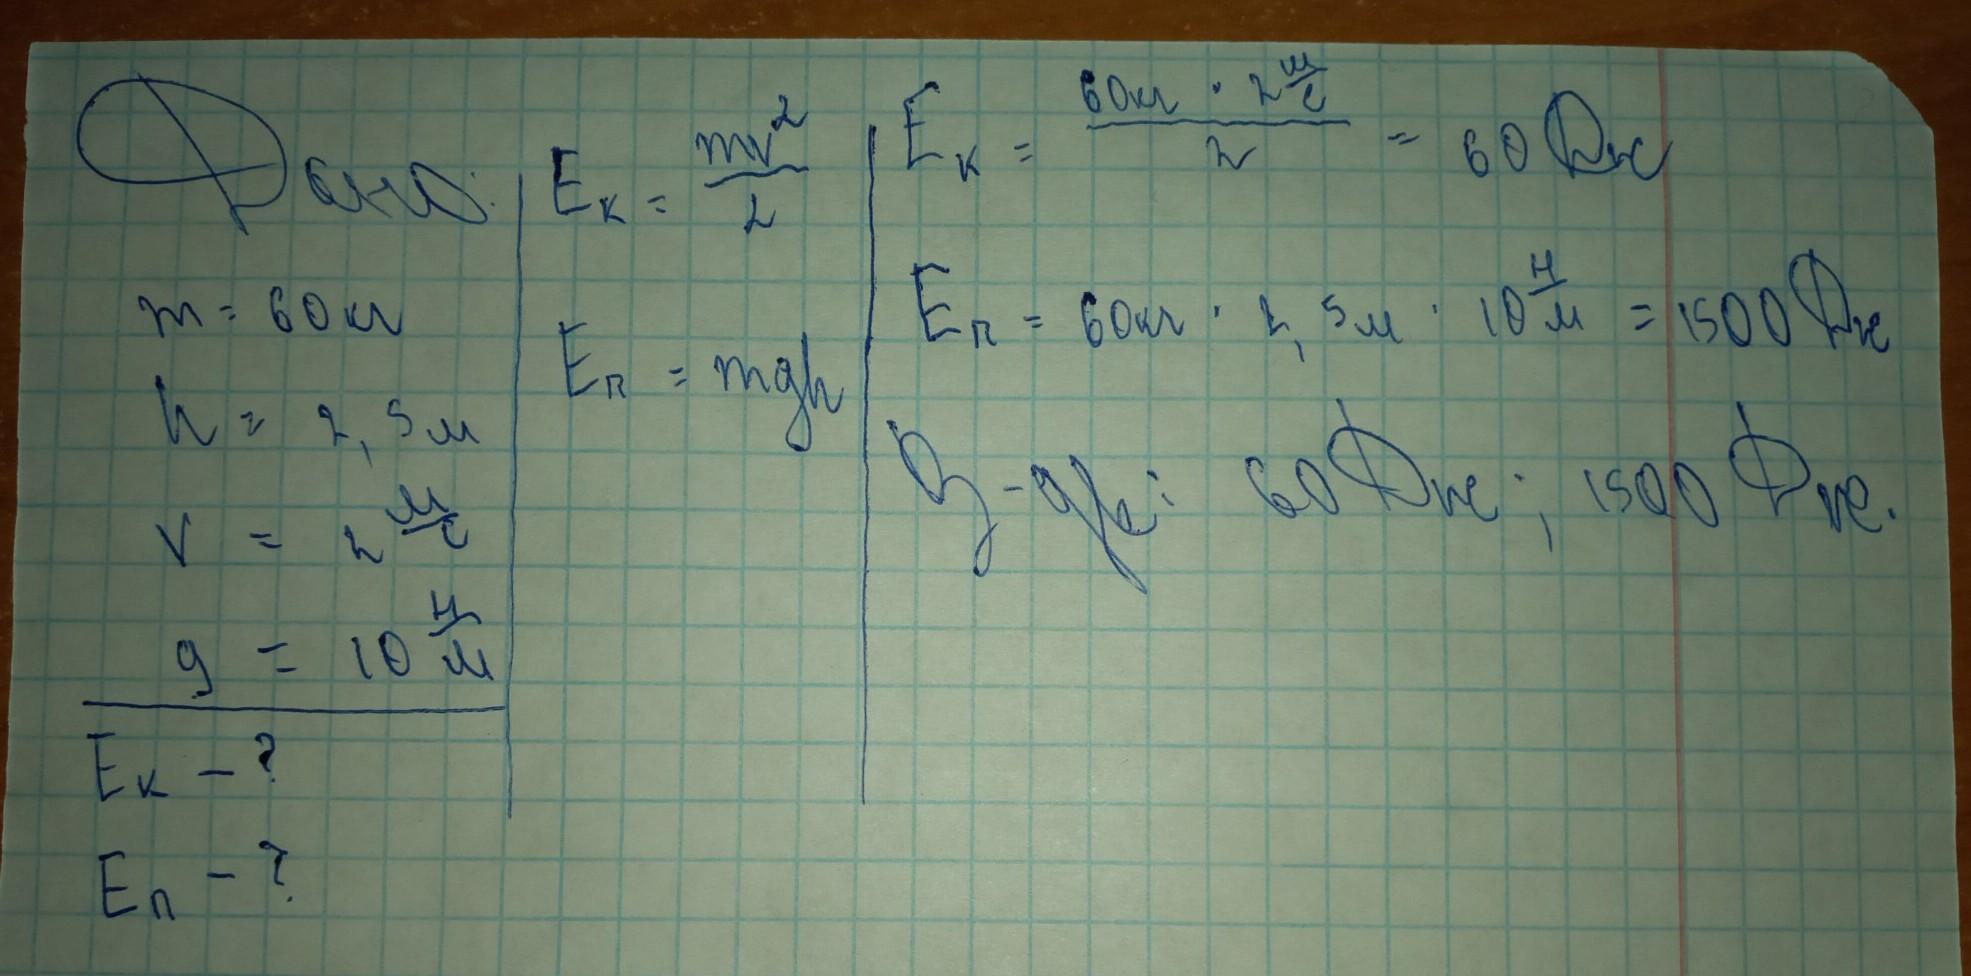 Дано:
m = 60 кг
h = 2,5 м
v = 2 м/с
g = 10 Н/м
Eк - ?
Eп - ?
Eк = mv²/2
Eп = mgh
Eк = 60кг · 2 м/с / 2 = 60 Дж
Eп = 60кг · 2,5м · 10 Н/м = 1500 Дж
В-дь: 60 Дж; 1500 Дж.